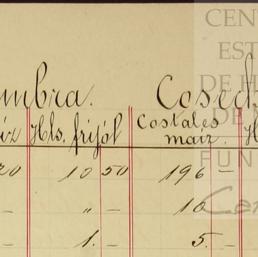 CEN
EST
DE H
DE
FUN
Cen
mbra. Cosed
iz Hls. frijól Costales maiz. H
20 10 50 196 –
– „ – 16 –
– 1. – 5. –